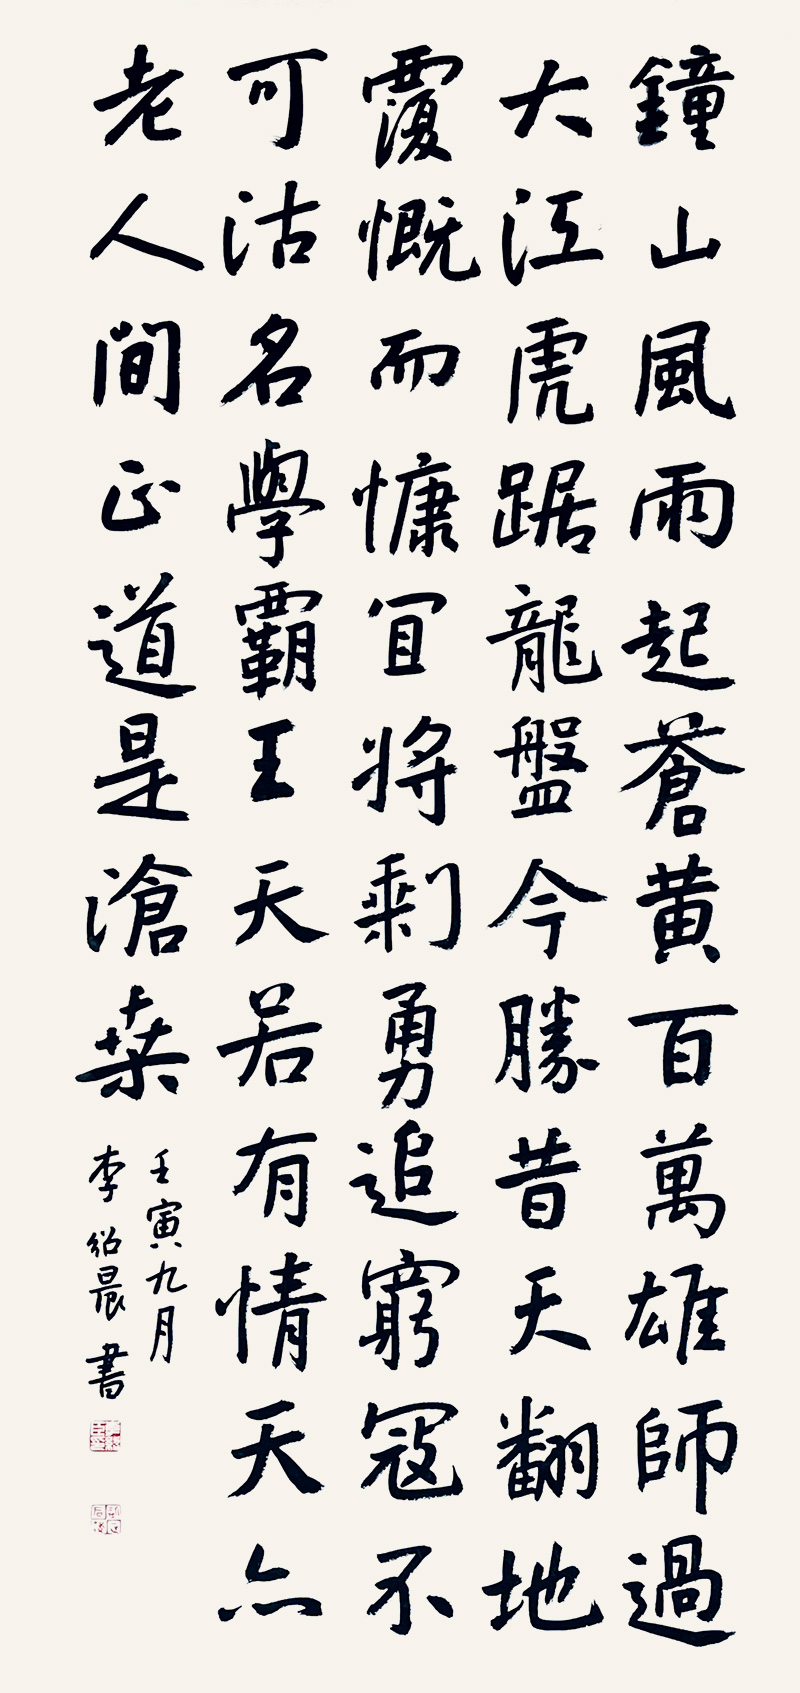 鐘山風雨起蒼黄百萬雄師過
大江虎踞龍盤今勝昔天翻地
覆慨而慷宜將剩勇追窮寇不
可沽名學霸王天若有情天亦
老人間正道是滄桑
壬寅九月
李紹晨書